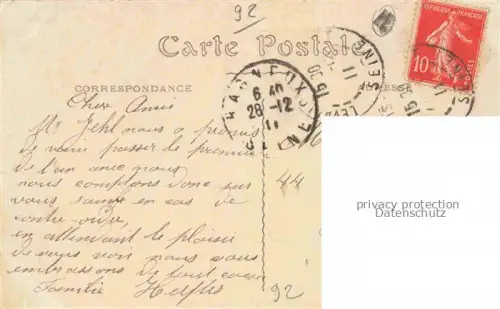 92
Carte Postale
CORRESPONDANCE
ADRESSE
REPUBLIQUE FRANÇAISE
10
POSTES
BAGNEUX
6 40
28 -12
11
SEINE
SEINE
Cher Amis
Mr Jehl nous a promis
de venir passer le premier
de l'an avec nous
nous comptons donc sur
vous sauve en cas de
contre-ordre,
en attendant le plaisir
de vous voir nous vous
embrassons de tout cœur
Famille
44
92
privacy protection
Datenschutz